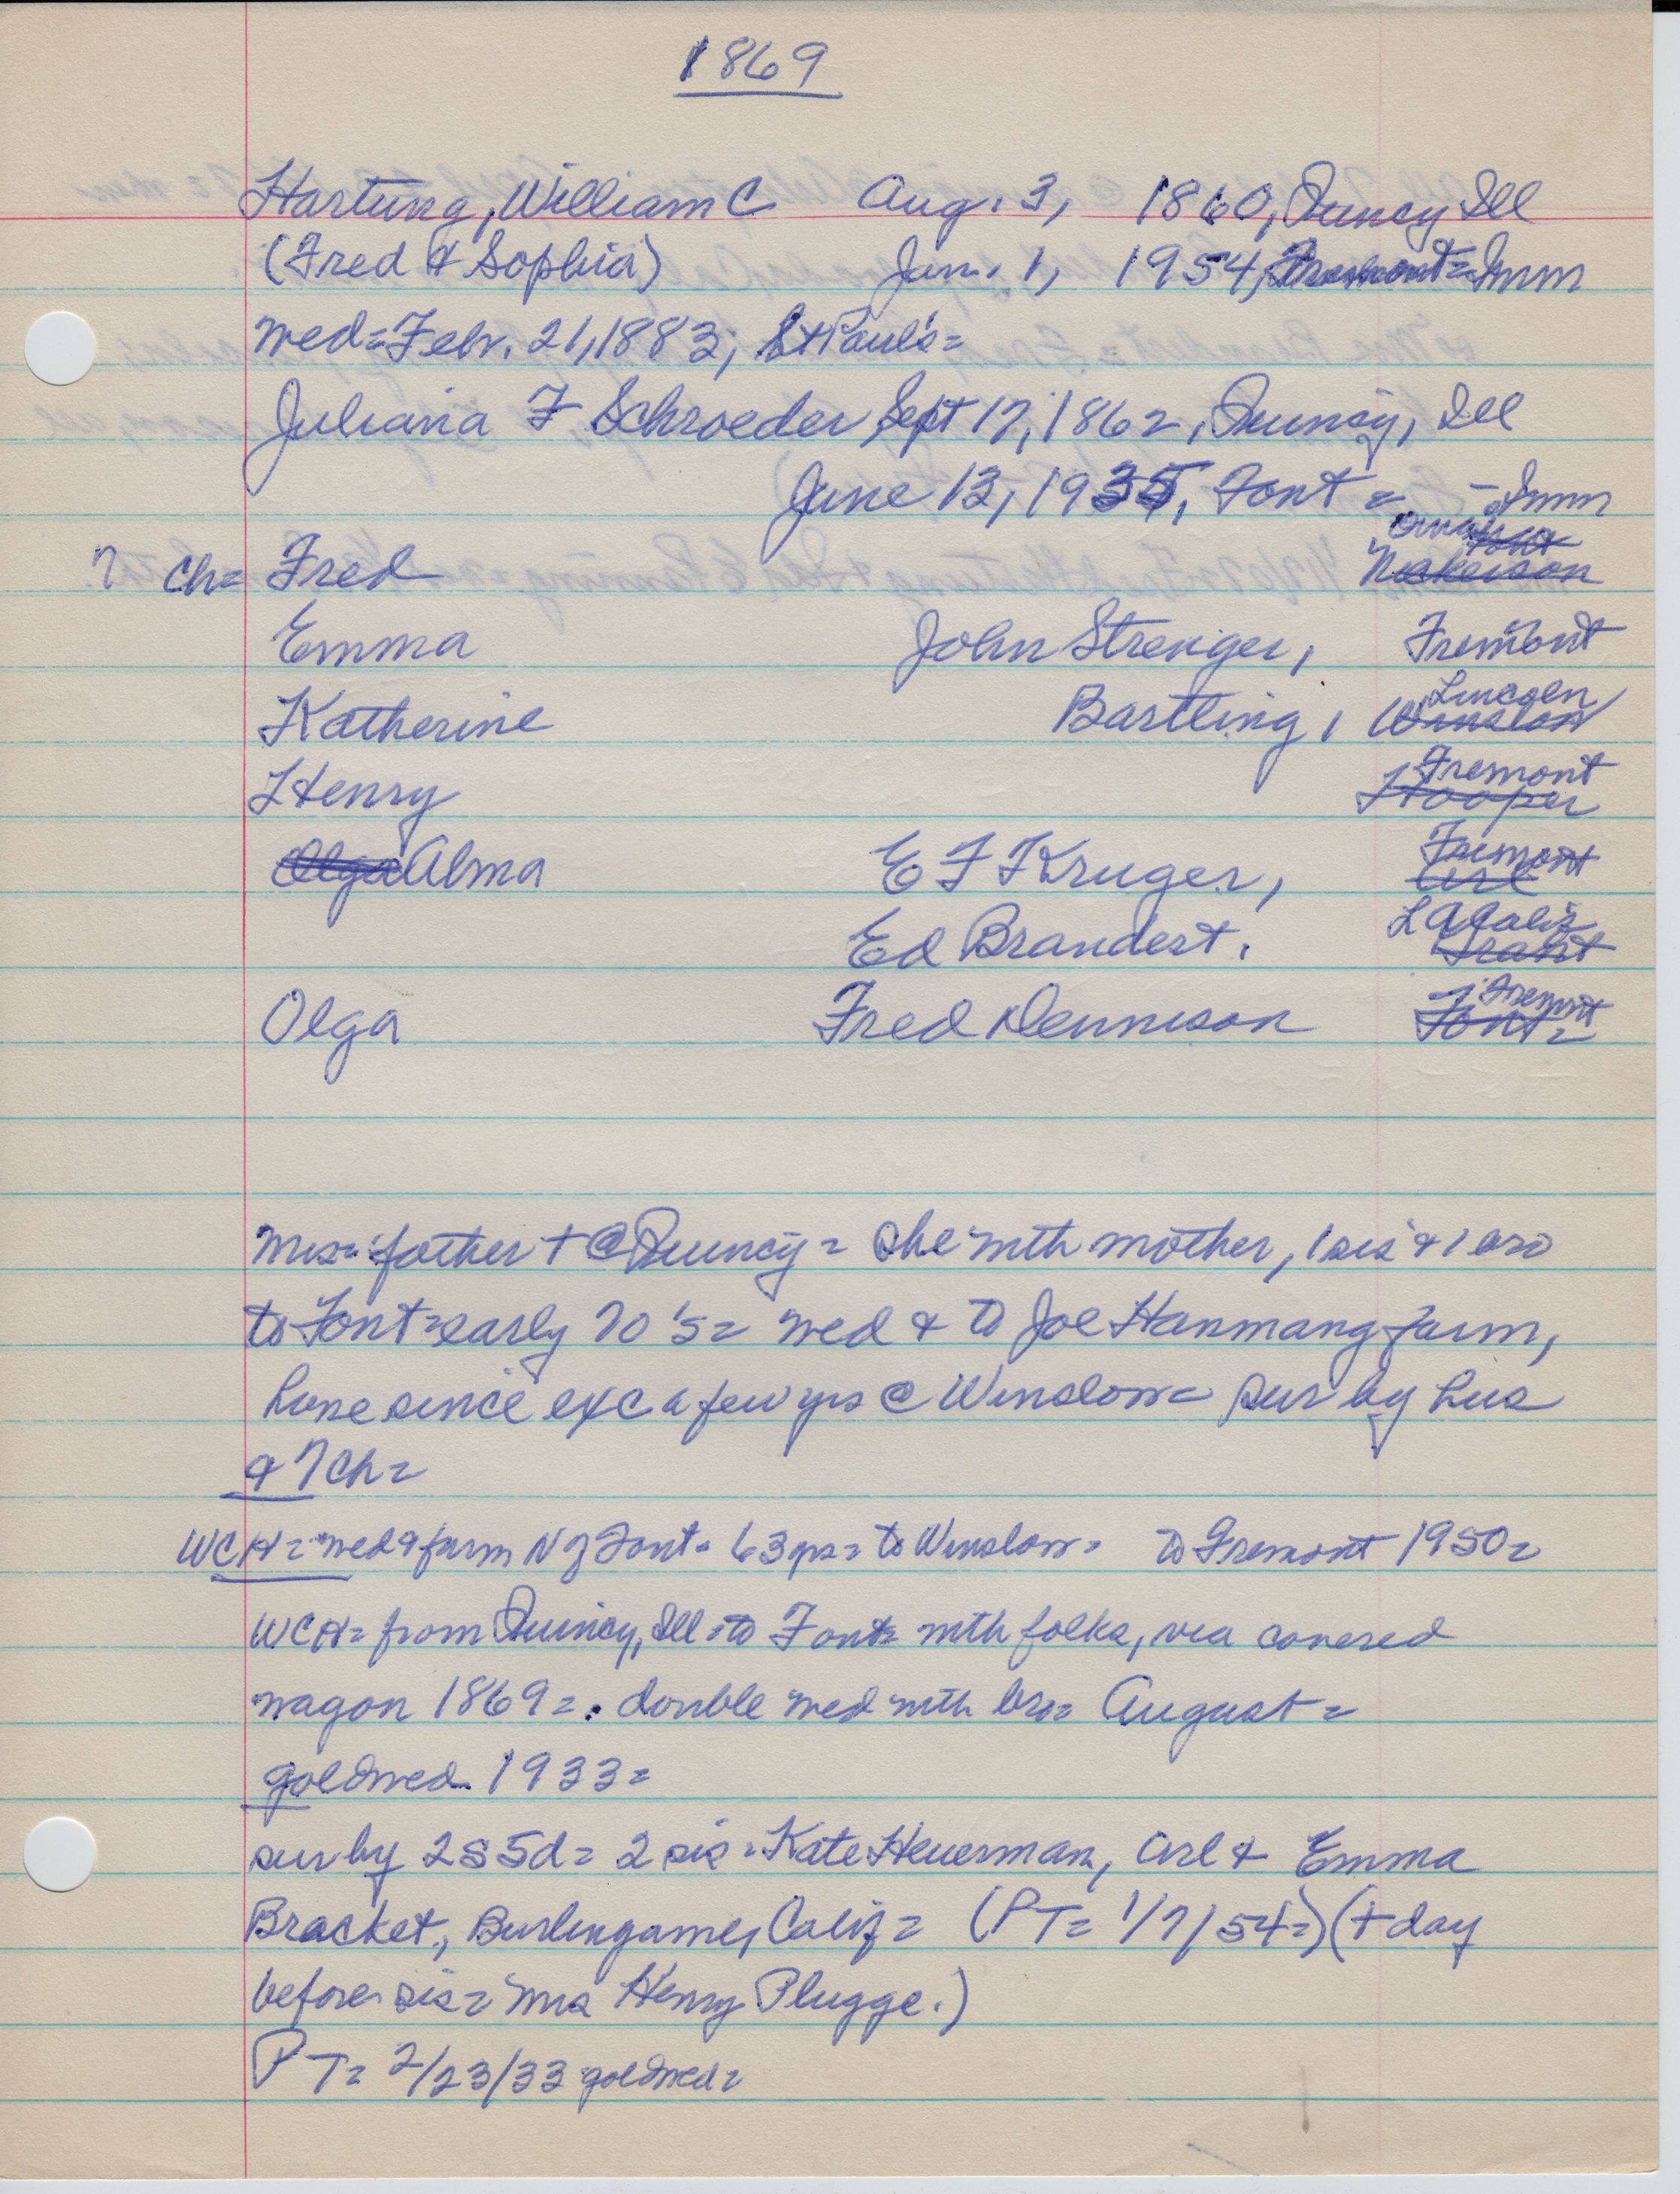 1869
Hartung, William C Aug. 3, 1860, Quincy Ill
(Fred & Sophia) Jan. 1, 1954, Fremont= Imm
wed= Febr. 21, 1883; St Paul's=
Juliana F Schroeder Sept 17, 1862, Quincy, Ill
June 13, 1935, Font = - Imm
Omaha
7 ch= Fred Nickerson
Emma John Strenger, Fremont
Lincoln
Katherine Bartling, Winslow
Fremont
Henry Hooper
Fremont
Olga Alma E F Kruger, Arl
LA Calif
Ed Brandert. Grant
Fremont
Olga Fred Dennison Font=
mrs= father + @ Quincy = she with mother, 1 sis & 1 bro
to Font= early 70's= wed & to Joe Hanmang farm,
home since exc a few yrs @ Winslow= sur by hus
& 7 ch=
WCH= wed & farm N of Font= 63 yrs= to Winslow= to Fremont 1950=
WCH= from Quincy, Ill= to Font= with folks, via covered
wagon 1869=. double wed with bro= August=
goldwed 1933=
sur by 2s 5d= 2 sis= Kate Heuerman, Arl & Emma
Bracket, Burlingame, Calif= (PT= 1/7/54=) (+ day
before sis= Mrs Henry Plugge.)
PT= 2/23/33 goldwed=